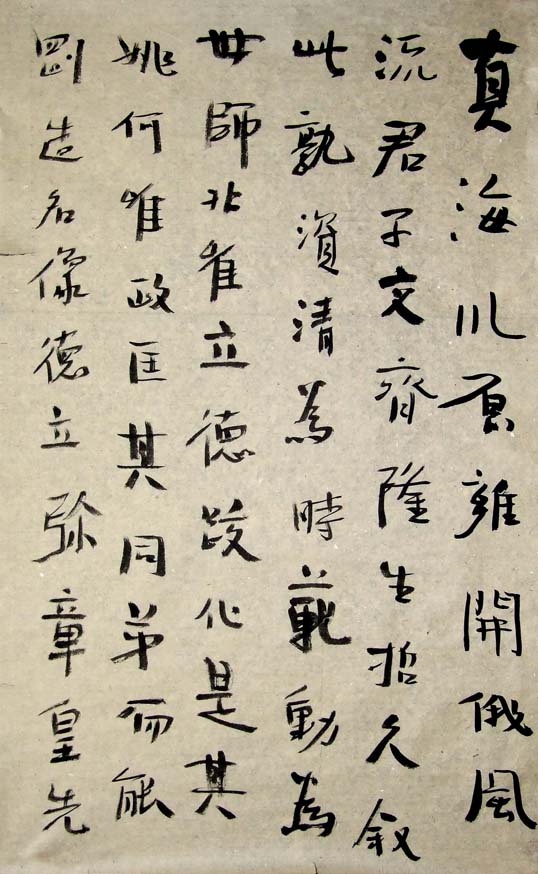 真海川原離開俄風
流君子文齊隆生哲久叙
此孰資清為時範動為
世師非隹立德設化是其
姚何唯政匡其同弟而能
劉造名像德立弥章皇先